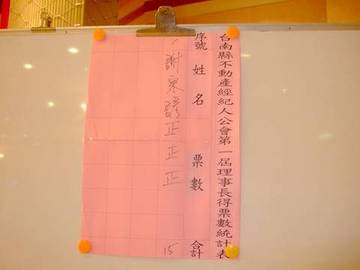 台南縣不動產經紀人公會第一屆理事長得票數統計表
序號 姓名 票數 合計
1 謝 正正正 15